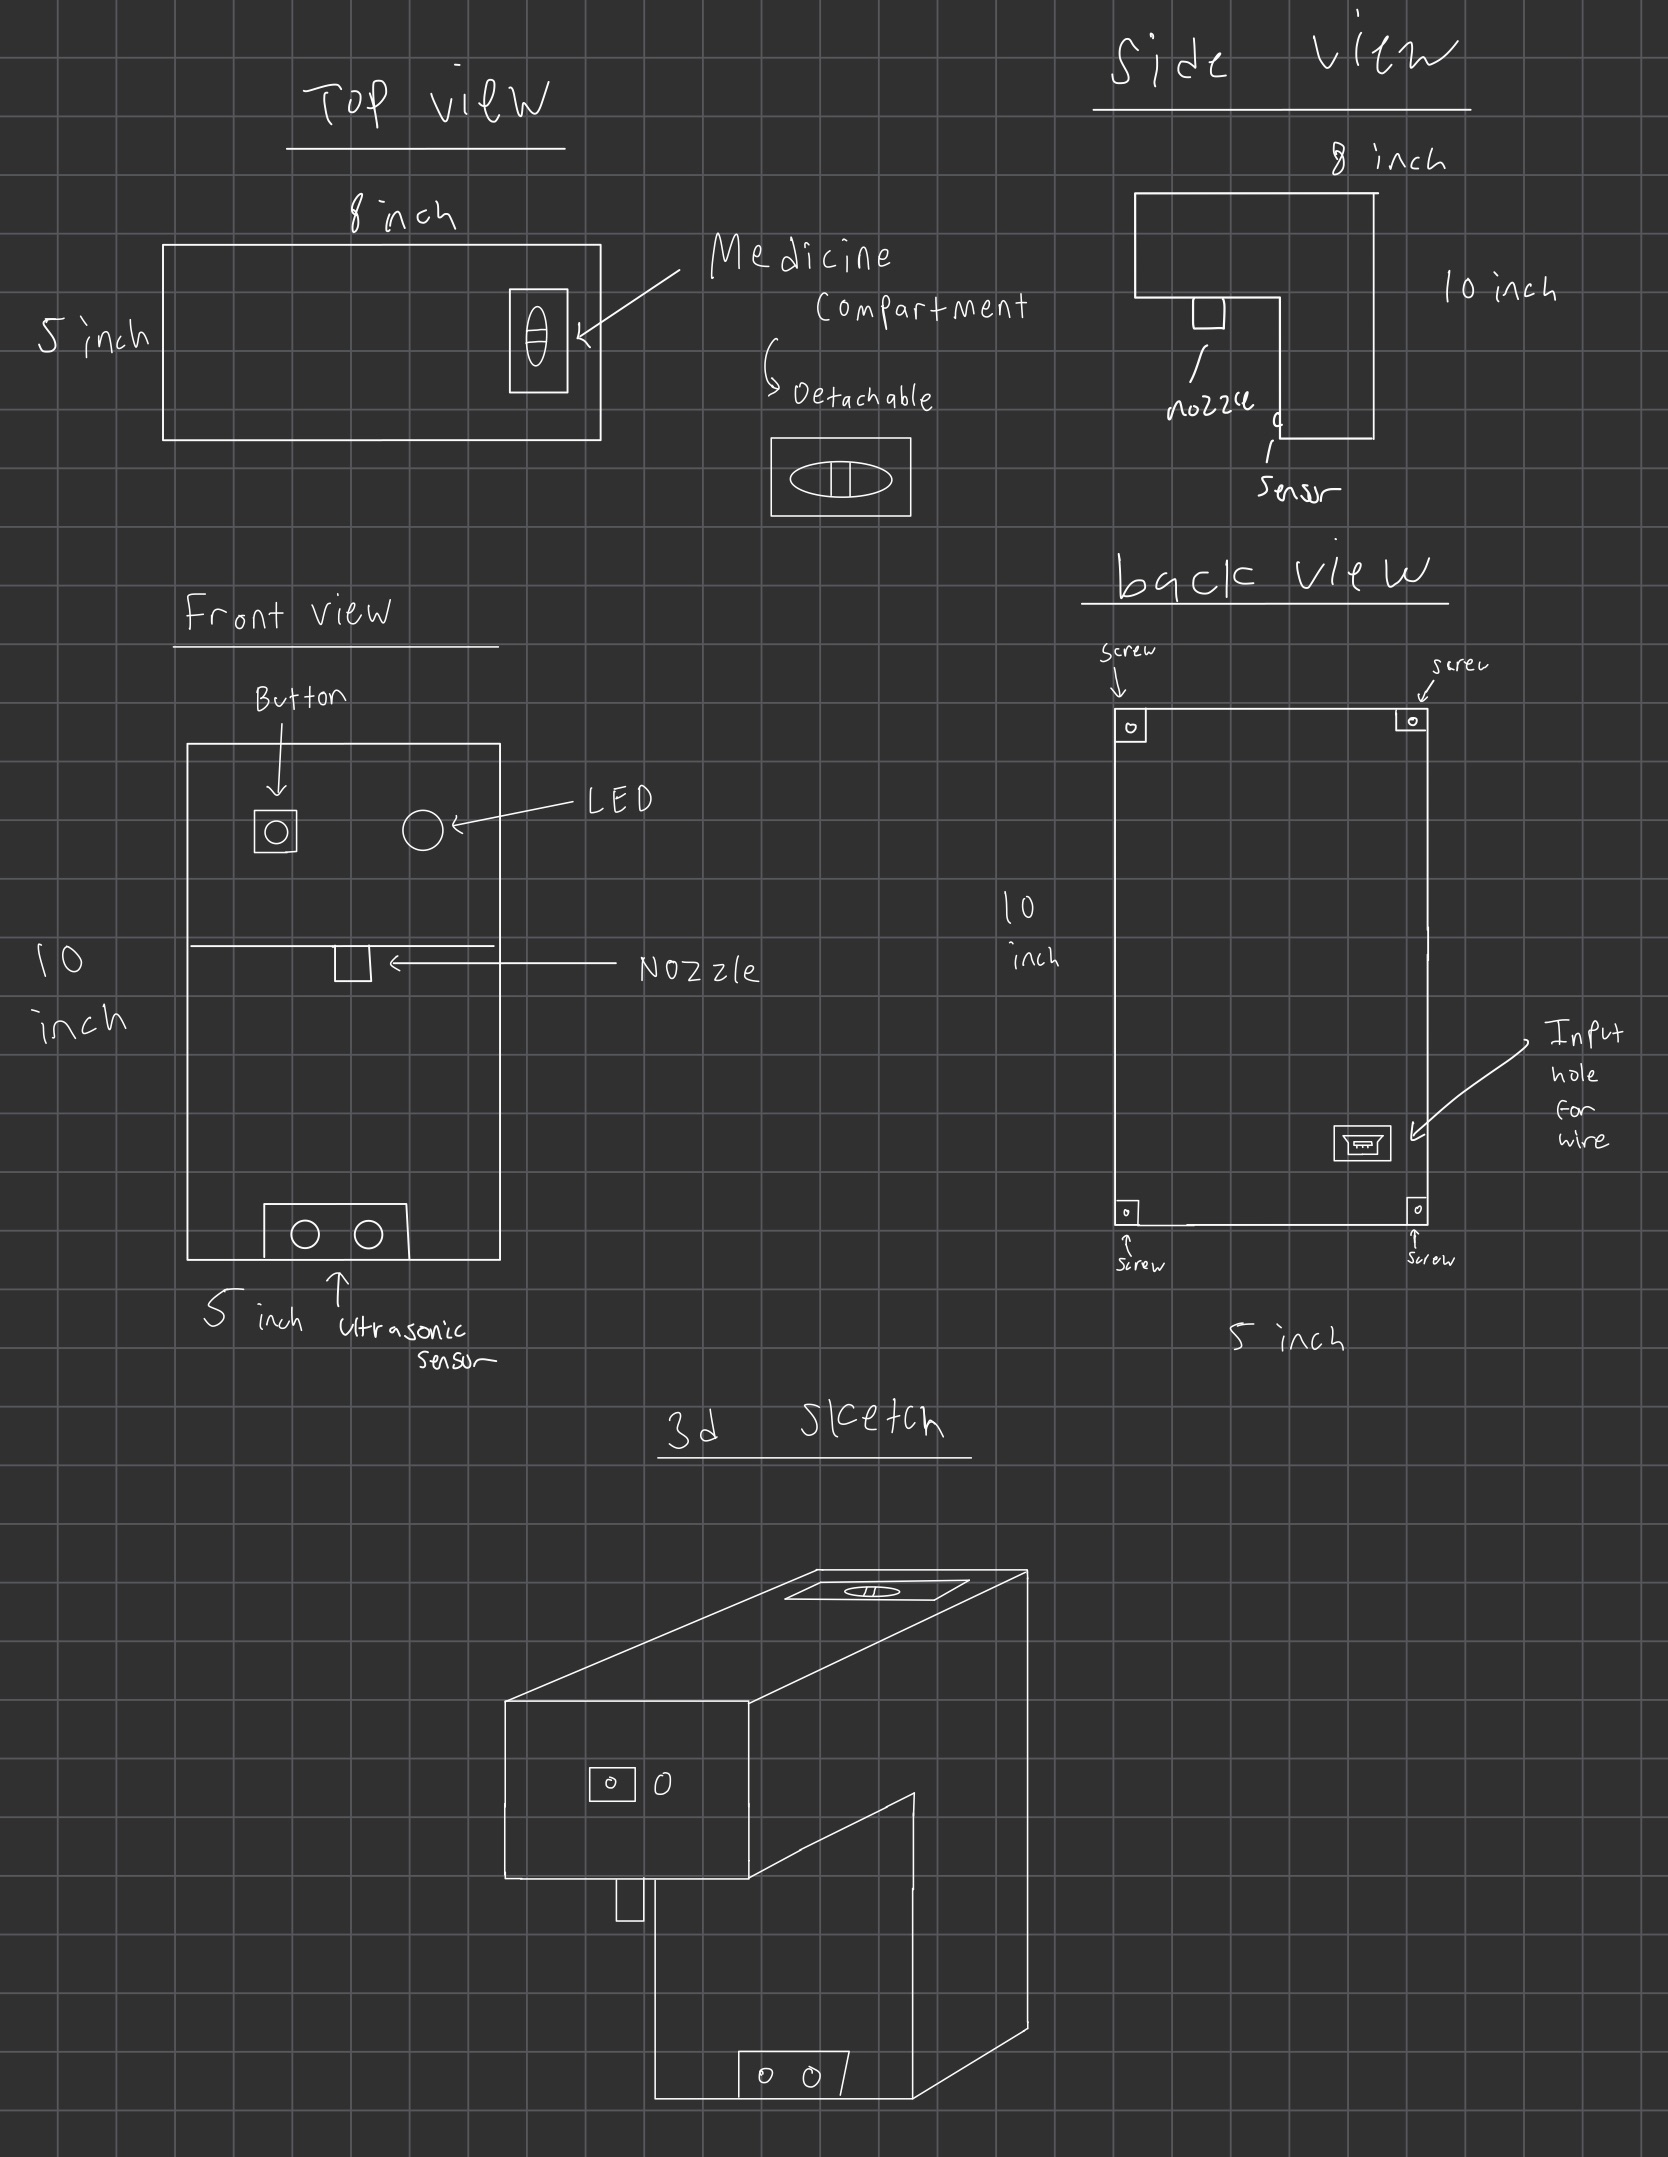 Top view
8 inch
5 inch
Medicine
Compartment
Detachable
Side view
8 inch
10 inch
nozzle
sensor
Front view
Button
LED
10
inch
Nozzle
5 inch
ultrasonic
sensor
back view
screw
screw
10
inch
Input
hole
for
wire
screw
screw
5 inch
3d sketch